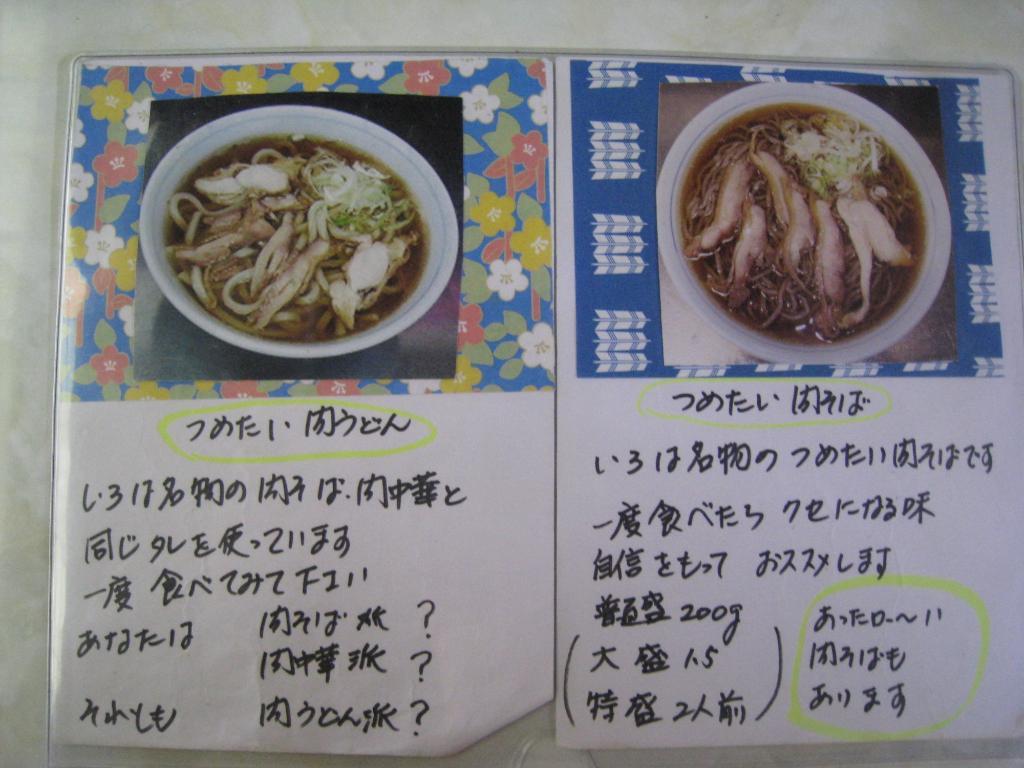 つめたい 肉うどん
いろは名物の肉そば、肉中華と
同じタレを使っています
一度 食べてみて下さい
あなたは 肉そば派？
肉中華派？
それとも 肉うどん派？
つめたい 肉そば
いろは名物の つめたい肉そばです
一度食べたら クセになる味
自信をもって おススメします
普通盛 200g
大盛 1.5
特盛 2人前
あったか〜い
肉そばも
あります